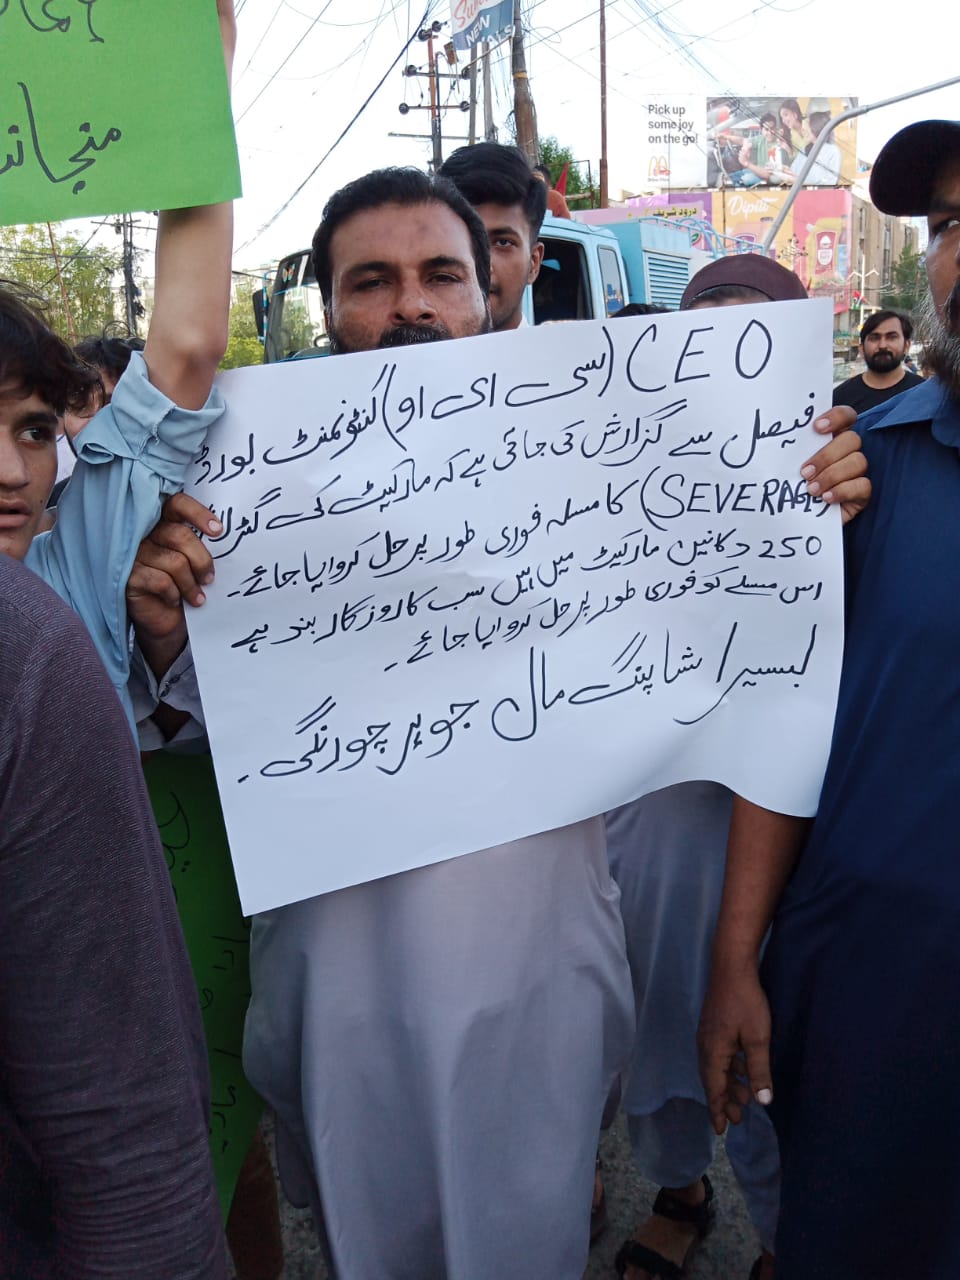 منجانب
Pick up
some joy
on the go!
درود شریف
Dipitt
NEW
CEO (سی ای او) کنٹونمنٹ بورڈ
فیصل سے گزارش کی جاتی ہے کہ مارکیٹ کی گٹر لائن
(SEVERAGE) کا مسلہ فوری طور پر حل کروایا جائے۔
250 دکانیں مارکیٹ میں ہیں سب کا روزگار بند ہے
اس مسلے کو فوری طور پر حل کروایا جائے۔
بسیرا شاپنگ مال جوہر چورنگی۔